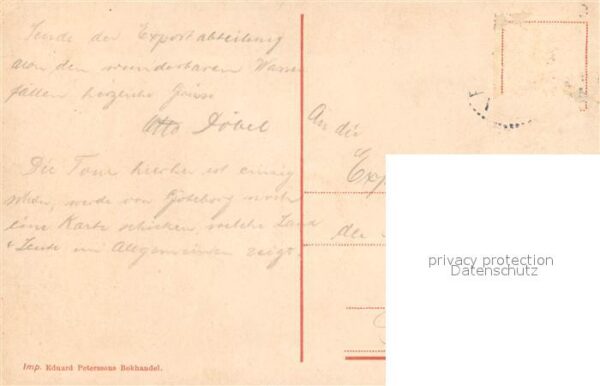 Sende der Exportabteilung
von den wunderbaren Wasser
fällen herzliche Grüsse
Otto Döbel
Die Tour hierher ist einzig
schön, werde von Göteborg noch
eine Karte schicken, welche Land
& Leute im Allgemeinen zeigt.
An die
Exp
der
privacy protection
Datenschutz
Imp. Eduard Peterssons Bokhandel.